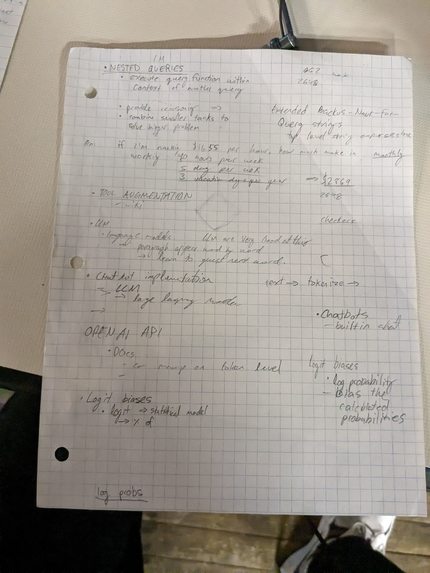 1M
• NESTED QUERIES
• execute query/function within
context of another query
2648
• combine smaller tasks to
solve bigger problem
Extended Backus-Naur-Form
Query strings
top level string expression
If I'm making $16.55 per hour, how much make in monthly
working 40 hours per week
5 days per week
3 vacation days per year → $2869
2648
- TOOL AUGMENTATION
- wiki
checkers
• LLM
- language models LLM are very good at this
→ paragraph appear word by word
→ learn to guess next word.
• Chatbot implementation text → tokenize →
- LLM
→ large language model
→
• Chatbots
- built in chat
OPEN AI API
• Docs
- on token level
logit biases
• log probability
- bias the
calculated
probabilities
• Logit biases
• logit → statistical model
↳ % of
log probs